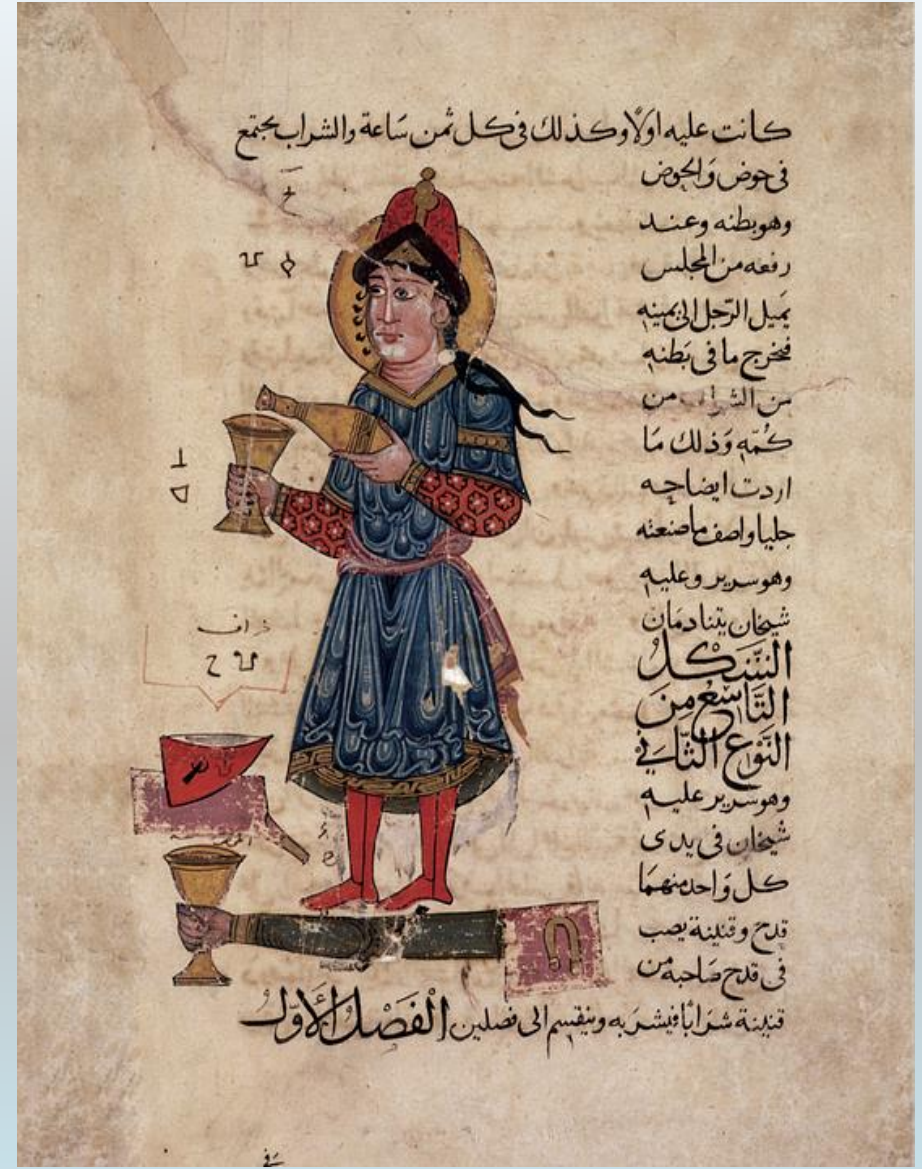 كانت عليه اولًا وكذلك فى كل ثمن ساعة والشراب يجتمع
فى حوض والحوض
وهو بطنه وعند
رفعه من المجلس
يميل الرجل الى يمينه
فيخرج ما فى بطنه
من الشراب من
كمّه وذلك ما
اردت ايضاحه
جليا واصف ما صنعته
وهو سرير وعليه
شيخان يتنادمان
الشكل
التاسع من
النوع الثانى
وهو سرير عليه
شيخان فى يدى
كل واحد منهما
قدح وقنينة يصب
فى قدح صاحبه من
قنينة شرابًا فيشربه وينقسم الى فصلين الفصل الأول
فى